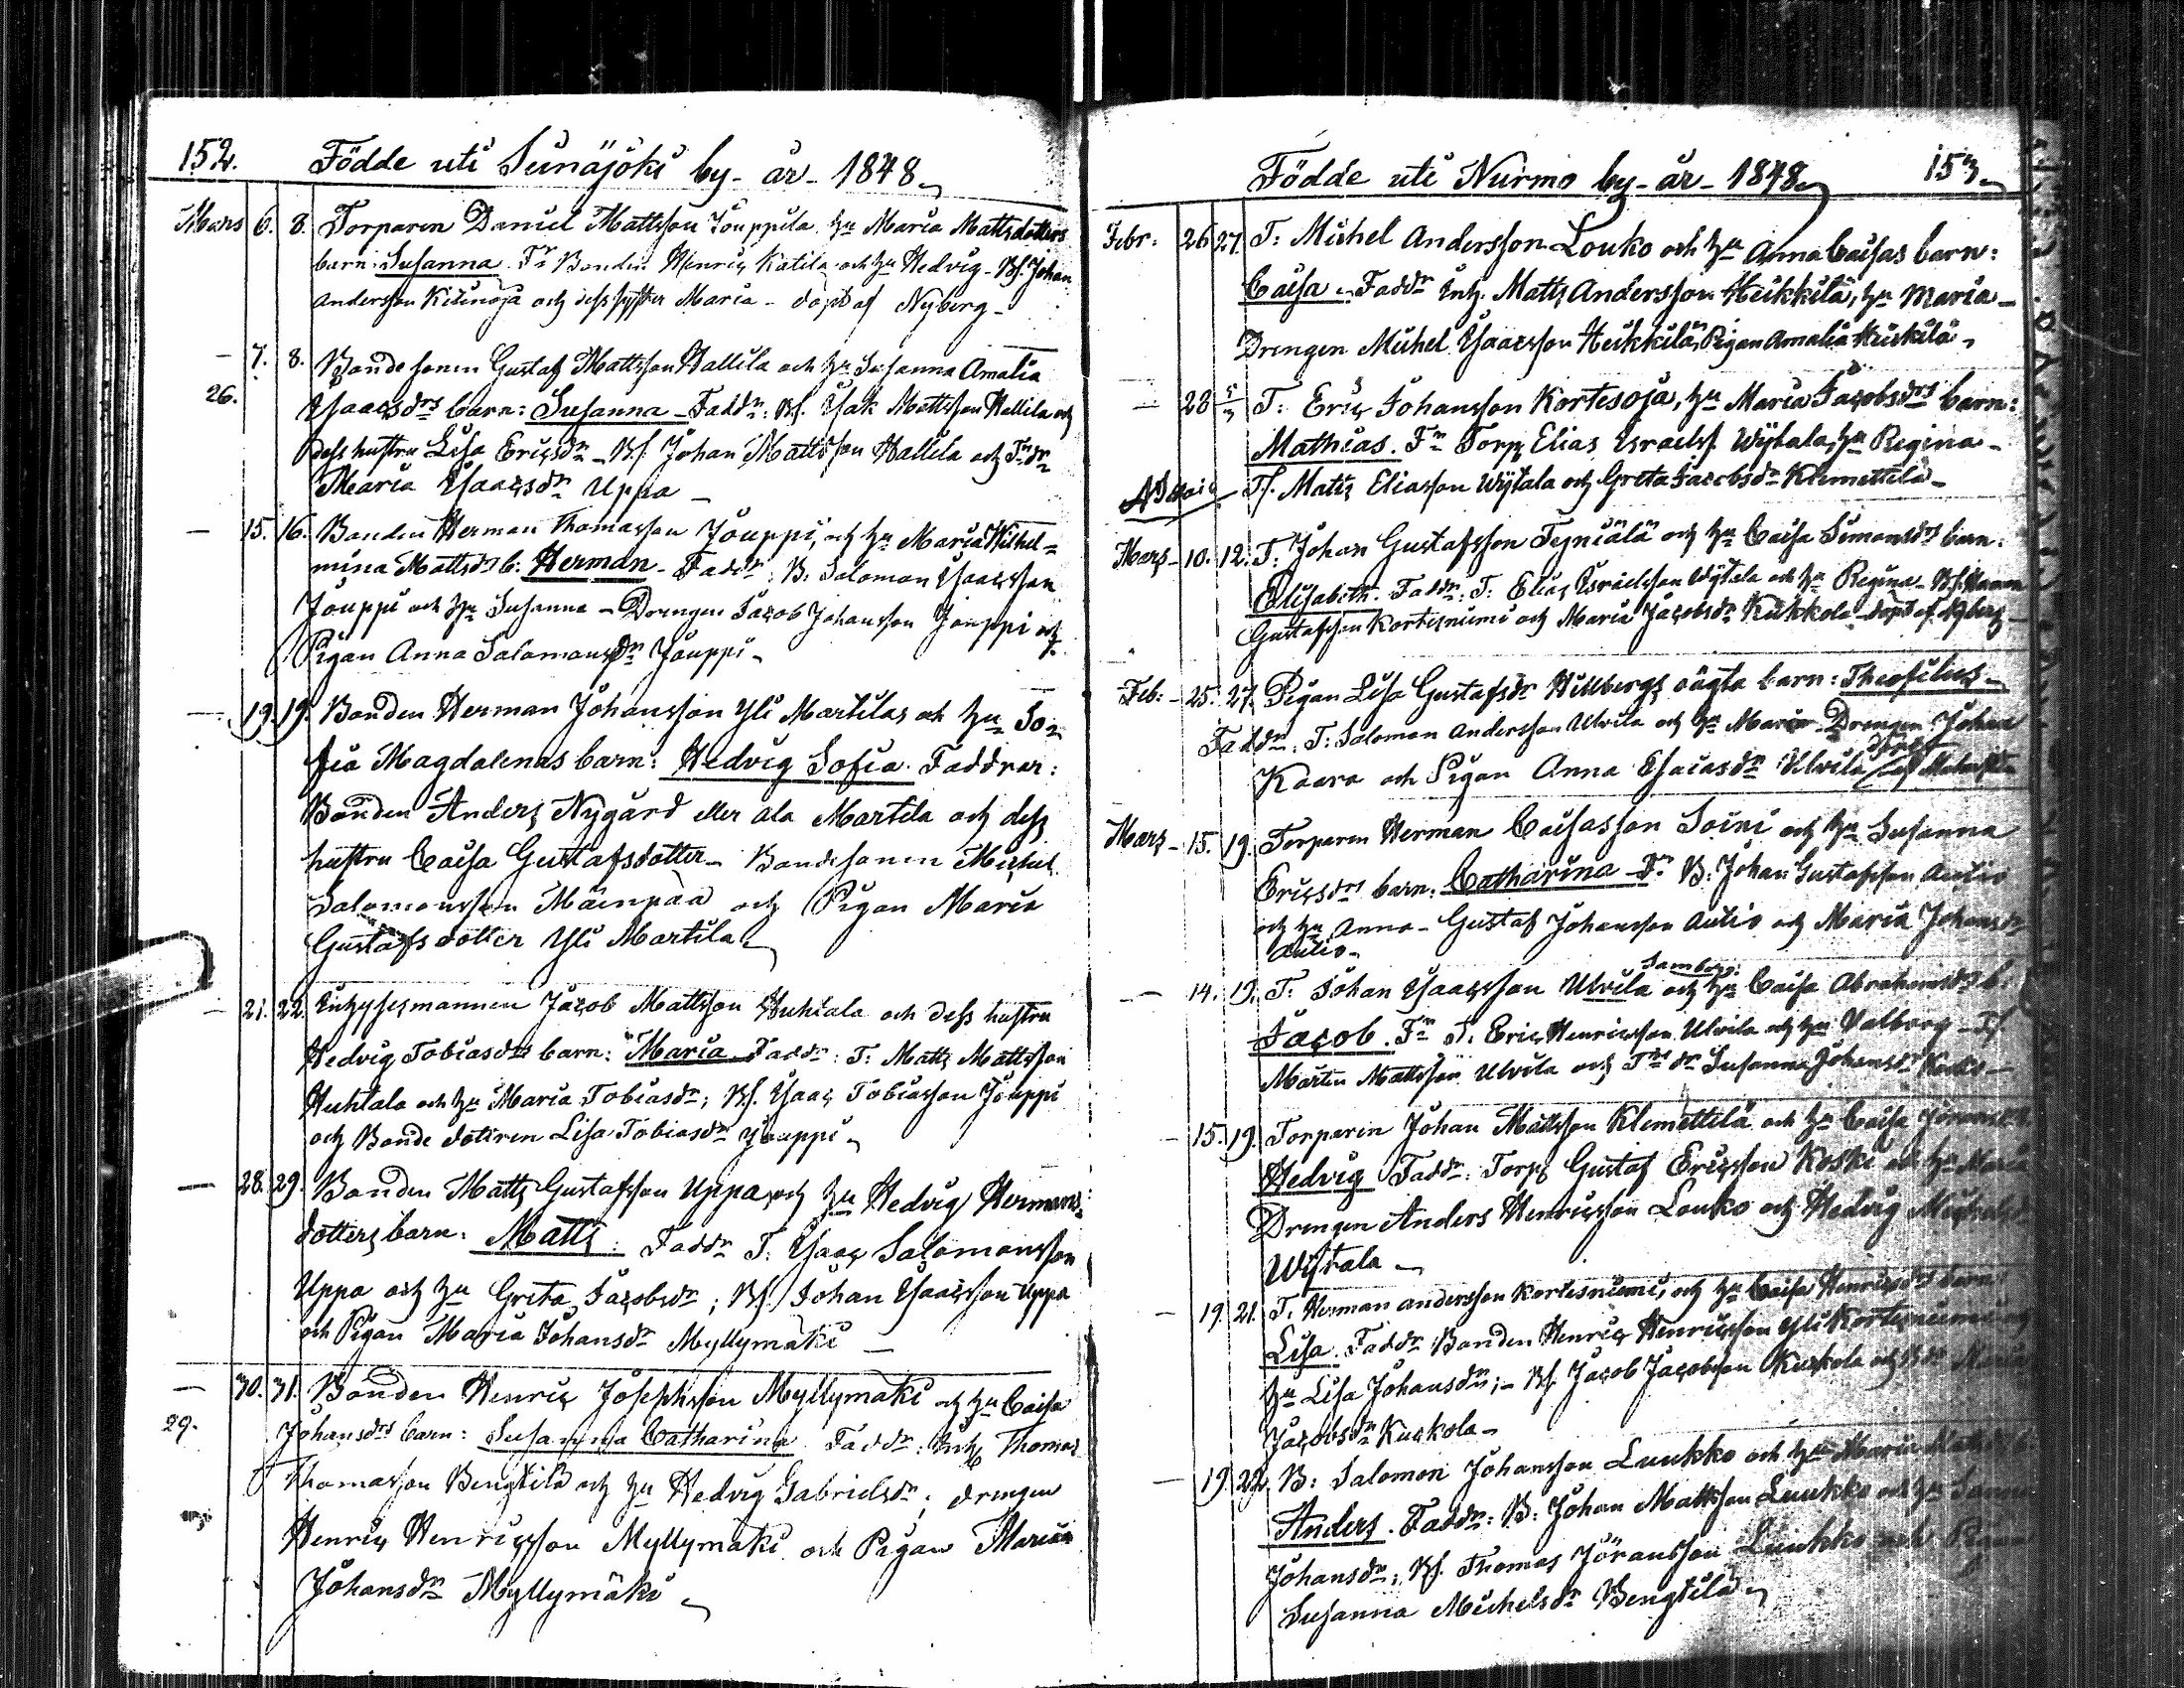 152.
Födde uti Seinäjoki by - år - 1848
Mars 6. 8. Torparen Daniel Mattsson Jouppila hu Maria Mattsdotters
barn: Susanna. Fr Bonden Henric Katila och hu Hedvig - Bs. Johan
Andersson Kitinoja och dess syster Maria - döpt af Nyberg -
- 7. 8. Bondesonen Gustaf Mattsson Hallila och hu Susanna Amalia
26. Isaacsdrs barn: Susanna - Faddr: Bs. Isak Mattsson Hallila och
dess hustru Lisa Ericsdr - Bs. Johan Mattsson Hallila och
Maria Isaacsdr Uppa -
- 15. 16. Bonden Herman Thomasson Jouppi, och hu Maria Wilhel=
mina Mattsdrs b: Herman - Faddr: B. Salomon Isaacsson
Jouppi och hu Susanna - Drengen Jacob Johansson Jouppi och
Pigan Anna Salomonsdr Jouppi -
- 19. 19. Bonden Herman Johansson Yli Martilas och hu So=
fia Magdalenas barn: Hedvig Sofia. Faddrar:
Bonden Anders Nygård eller ala Martila och dess
hustru Caisa Gustafsdotter - Bondesonen Michel
Salomonsson Mäenpää och Pigan Maria
Gustafsdotter Yli Martila
- 21. 22. Inhysesmannen Jacob Mattsson Huhtala och dess hustru
Hedvig Tobiasdrs barn: Maria Faddr: T: Matts Mattsson
Huhtala och hu Maria Tobiasdr; Bs. Isaac Tobiasson Jouppi
och Bonde dottren Lisa Tobiasdr Jouppi
- 28. 29. Bonden Matts Gustafsson Uppa, och hu Hedvig Hermans=
dotters barn: Matts: Faddr T: Isaac Salomonsson
Uppa och hu Greta Jacobsdr; Bs. Johan Isaacsson Uppa
och Pigan Maria Johansdr Myllymäki -
- 30. 31. Bonden Henric Josephsson Myllymäki och hu Caisa
29. Johansdrs barn: Susanna Catharina Faddr: Inh. Thomas
Thomasson Bengtilä och hu Hedvig Gabrielsdr; drengen
Henric Henricsson Myllymäki och Pigan Maria
Johansdr Myllymäki
Födde uti Nurmo by - år - 1848 153
Febr: 26 27. T: Michel Andersson Louko och hu Anna Caisas barn:
Caisa - Faddr Inh. Matts Andersson Heikkilä, hu Maria -
Drengen Michel Isaacsson Heikkilä, Pigan Amalia Heikkilä -
- 28 5/3 T: Eric Johansson Kortesoja, hu Maria Jacobsdrs barn:
Mathias. Fr Torp Elias Israelss. Wÿtala, hu Regina -
Ts. Matts Eliasson Wÿtala och Greta Jacobsdr Klemettilä -
Mars - 10. 12. T: Johan Gustafsson och hu Caisa Simonsdrs barn:
Elisabeth. Faddr: T: Elias Israelsson Wÿtala och hu Regina - Bs. Herman
Gustafsson Kortesniemi och Maria Jacobsdr Kukkola - döpt af Nyberg -
Feb: - 25. 27. Pigan Lisa Gustafsdr Hillbergs oägta barn: Theofilus -
Faddr: T: Salomon Andersson Ulvila och hu Maria - Drengen Johan
döpt
Kaara och Pigan Anna Esaiasdr Ulvila af
Mars - 15. 19. Torparen Herman Caisasson Soini och hu Susanna
Ericsdrs barn: Catharina - Fr. B: Johan Gustafsson Autio
och hu Anna - Gustaf Johansson Autio och Maria Johansdr
Autio -
Samberg:
- 14. 19. T: Johan Isaacsson Ulvila och hu Caisa Abrahamsdrs b:
Jacob. Fr T. Eric Henricsson Ulvila och hu Valborg - Ts.
Martin Mattsson Ulvila och Susanna Johansdr
- 15. 19. Torparen Johan Mattsson Klemettilä och hu Caisa
Hedvig Faddr: Torp Gustaf Ericsson Koski och hu Maria
Drengen Anders Henricsson Louko och Hedvig
Wÿtala -
- 19. 21. T. Herman Andersson Kortesniemi, och hu Caisa Henricsdrs barn
Lisa. Faddr Bonden Henric Henricsson Yli Kortesniemi och
hu Lisa Johansdr; - Bs. Jacob Jacobsson Kuckola och
Jacobsdr Kuckola -
- 19. 22. B: Salomon Johansson Luukko och hu Maria
Anders. Faddr: B: Johan Mattsson Luukko och hu Sanna
Johansdr; Bs. Thomas Jöransson Luukko och Pigan
Susanna Michelsdr Bengtilä